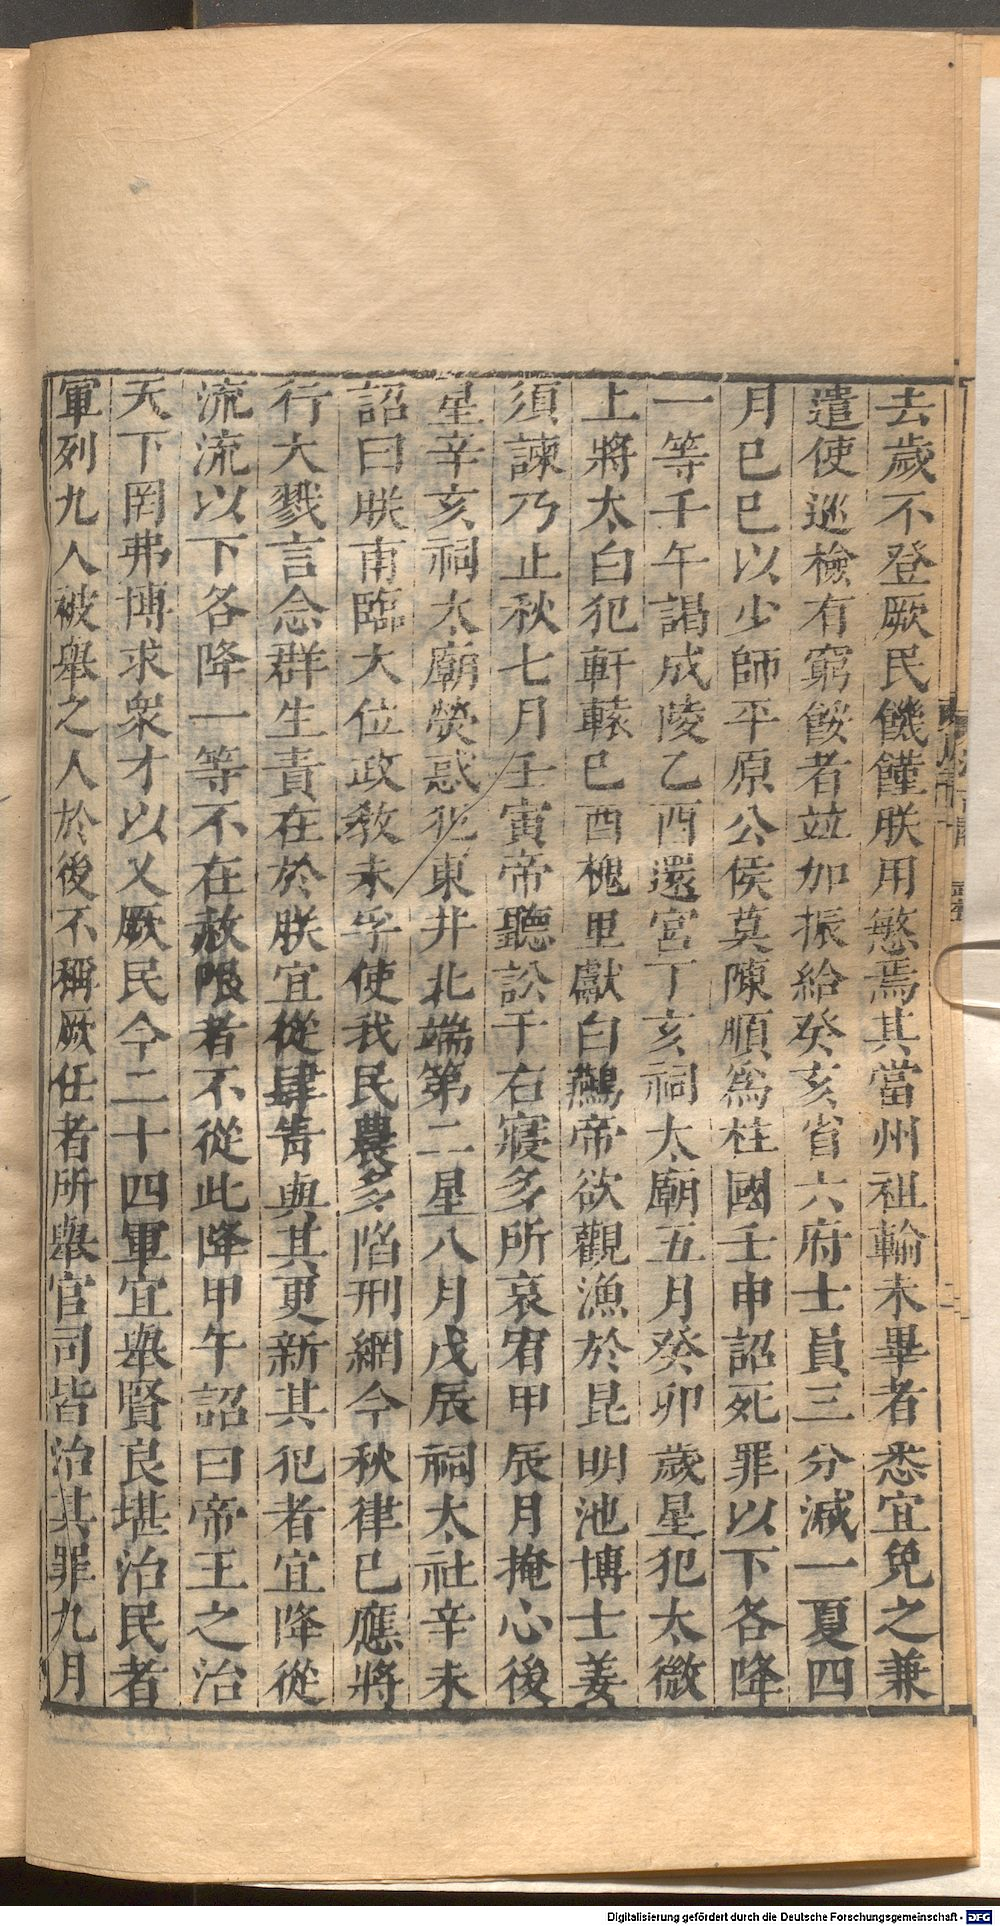 去歲不登厥民饑饉朕用慜焉其當州祖輸未畢者悉宜免之兼
遣使巡檢有窮餒者並加振給癸亥省六府士員三分減一夏四
月己巳以少師平原公侯莫陳順爲柱國壬申詔死罪以下各降
一等千午謁成陵乙酉還宮丁亥祠太廟五月癸卯歲星犯太微
上將太白犯軒轅己酉槐里獻白鷰帝欲觀漁於昆明池博士姜
須諫乃止秋七月壬寅帝聽訟于右寢多所哀宥甲辰月掩心後
星辛亥祠太廟熒惑犯東井北端第二星八月戊辰祠太社辛未
詔曰朕南臨大位政敎未孚使我民農多陷刑網今秋律已應將
行大戮言念群生責在於朕宜從肆眚與其更新其犯者宜降從
流流以下各降一等不在赦限者不從此降甲午詔曰帝王之治
天下罔弗博求衆才以乂厥民今二十四軍宜舉賢良堪治民者
軍列九人被舉之人於後不稱厥任者所舉官司皆治其罪九月
Digitalisierung gefördert durch die Deutsche Forschungsgemeinschaft - DFG